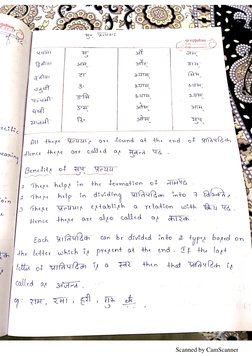 सुप् प्रत्ययाः
प्रथमा सु औ जस्
द्वितीया अम् औट् शस्
तृतीया टा भ्याम् भिस्
चतुर्थी ङे भ्याम् भ्यस्
पञ्चमी ङसि भ्याम् भ्यस्
षष्ठी ङस् ओस् आम्
सप्तमी ङि ओस् सुप्
All these प्रत्यय, are found at the end of प्रातिपदिक.
Hence these are called as सुबन्त पद.
Benefits of सुप् प्रत्यय
1 These help in the formation of नामपद
2 These help in dividing प्रातिपदिक into 7 विभक्ति.
3 These प्रत्यय establish a relation with क्रिया पद.
Hence these are also called as कारक
Each प्रातिपदिक can be divided into 2 types based on
the letter which is present at the end. If the last
letter of प्रातिपदिक is a स्वर then that प्रातिपदिक is
called as अजन्त.
राम, रमा, हरी, गुरु
Scanned by CamScanner